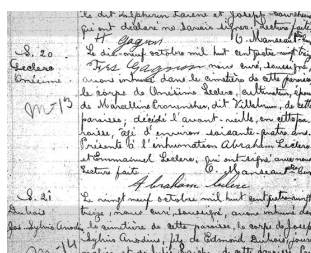 le dit Sylphirin Lavoie et Joseph
qui ont déclaré ne savoir signer. Lecture faite
F. Gagnon C. Manseau Ptre
S. 20
Leclerc
Onésime
M-13
Le dix-neuf octobre mil huit cent quatre-vingt-treize
nous curé, soussigné,
avons inhumé dans le cimetière de cette paroisse
le corps de Onésime Leclerc, cultivateur, époux
de Marcelline Crononshre, dit Villebrun, de cette
paroisse, décédé l'avant-veille, en cette pa-
roisse, âgé d'environ soixante-quatre ans.
Présents à l'inhumation Abraham Leclerc
et Emmanuel Leclerc, qui ont signé avec nous
Lecture faite C. Manseau Ptre
Abraham Leclerc
S. 21
Dubois
Jos. Sylvio Anodius
M-14
Le vingt neuf octobre mil huit cent quatre-vingt-
treize, nous curé, soussigné, avons inhumé dans
le cimetière de cette paroisse, le corps de Joseph
Sylvio Anodius, fils de Edmond Dubois, jour-